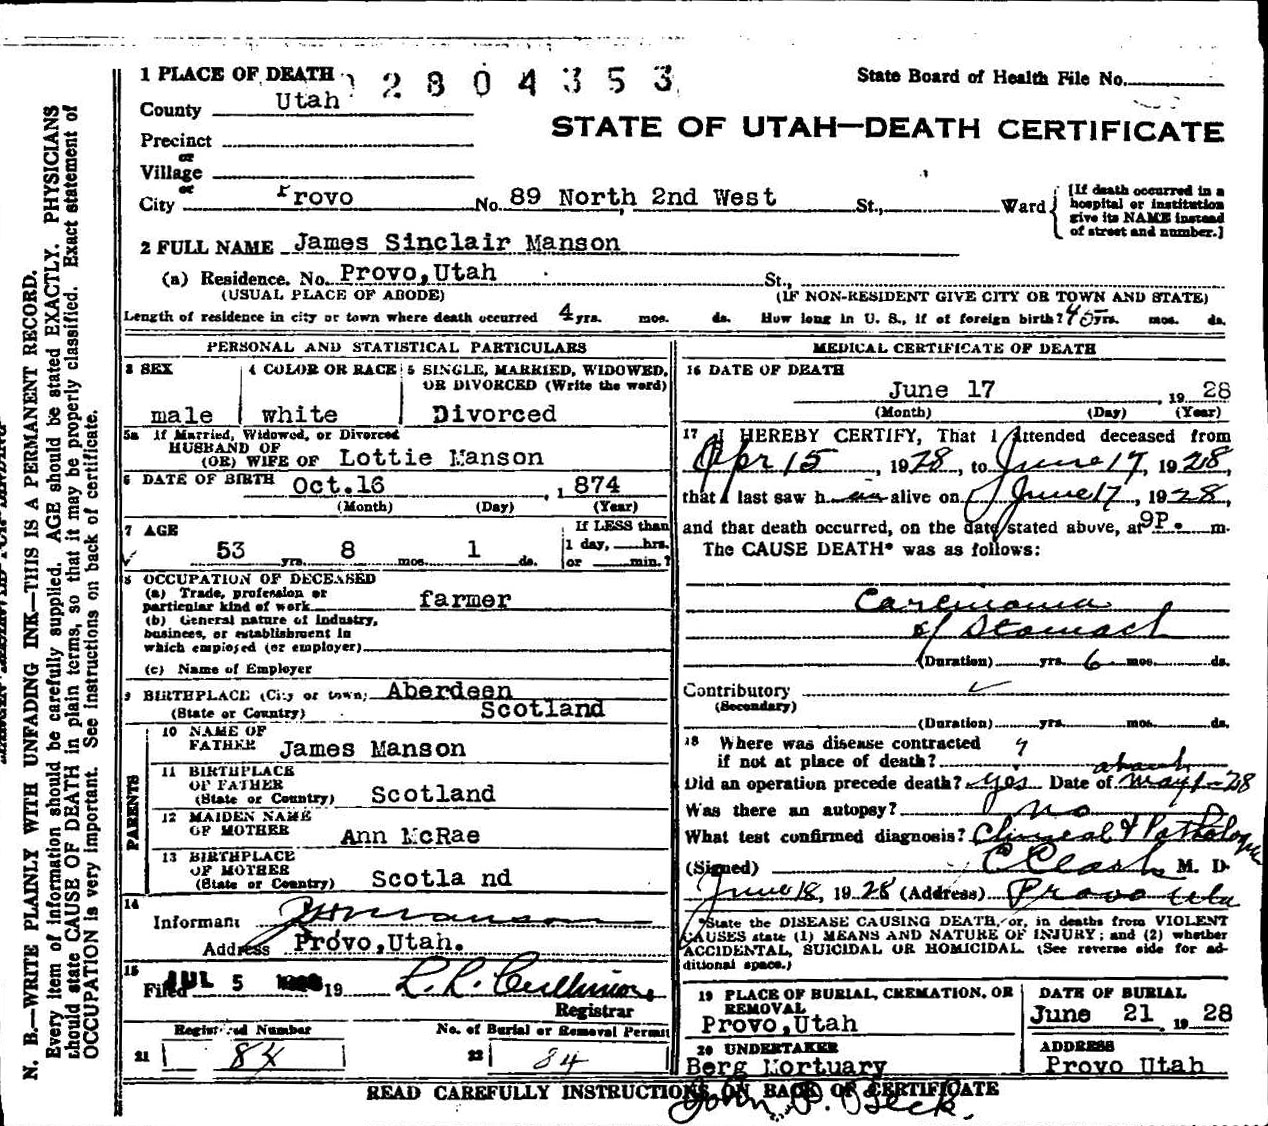 1 PLACE OF DEATH 2804353 State Board of Health File No.
County Utah
STATE OF UTAH—DEATH CERTIFICATE
Precinct
or
Village
or
City Provo No. 89 North 2nd West St., Ward
[If death occurred in a hospital or institution give its NAME instead of street and number.]
2 FULL NAME James Sinclair Manson
(a) Residence. No. Provo,Utah St.,
(USUAL PLACE OF ABODE) (IF NON-RESIDENT GIVE CITY OR TOWN AND STATE)
Length of residence in city or town where death occurred 4 yrs. mos. ds. How long in U. S., if of foreign birth? 45 yrs. mos. ds.
PERSONAL AND STATISTICAL PARTICULARS
3 SEX
male
4 COLOR OR RACE
white
5 SINGLE, MARRIED, WIDOWED, OR DIVORCED (Write the word)
Divorced
5a If Married, Widowed, or Divorced
HUSBAND OF
(OR) WIFE OF Lottie Manson
6 DATE OF BIRTH Oct.16 , 1874
(Month) (Day) (Year)
7 AGE
53 yrs. 8 mos. 1 ds.
If LESS than
1 day, hrs.
or min.?
8 OCCUPATION OF DECEASED
(a) Trade, profession or
particular kind of work farmer
(b) General nature of industry,
business, or establishment in
which employed (or employer)
(c) Name of Employer
9 BIRTHPLACE (City or town) Aberdeen
(State or Country) Scotland
PARENTS
10 NAME OF
FATHER James Manson
11 BIRTHPLACE
OF FATHER
(State or Country) Scotland
12 MAIDEN NAME
OF MOTHER Ann McRae
13 BIRTHPLACE
OF MOTHER
(State or Country) Scotla nd
14
Informant Manson
Address Provo,Utah.
15
Filed JUL 5 19 L. L. Cullimore
Registrar
Registered Number No. of Burial or Removal Permit
21 84 22 84
MEDICAL CERTIFICATE OF DEATH
16 DATE OF DEATH
June 17 , 19 28
(Month) (Day) (Year)
17 I HEREBY CERTIFY, That I attended deceased from
Apr 15, 1928, to June 17, 1928
that I last saw h alive on June 17, 1928,
and that death occurred, on the date stated above, at 9P. m.
The CAUSE DEATH* was as follows:
Carcinoma
of Stomach
(Duration) yrs. 6 mos. ds.
Contributory
(Secondary)
(Duration) yrs. mos. ds.
18 Where was disease contracted
if not at place of death? ?
Did an operation precede death? Yes Date of about May 1-28
Was there an autopsy? No
What test confirmed diagnosis? Clinical & Pathologic
(Signed) M. D.
June 18, 1928 (Address) Provo Utah
*State the DISEASE CAUSING DEATH, or, in deaths from VIOLENT
CAUSES state (1) MEANS AND NATURE OF INJURY; and (2) whether
ACCIDENTAL, SUICIDAL OR HOMICIDAL. (See reverse side for ad-
ditional space.)
19 PLACE OF BURIAL, CREMATION, OR
REMOVAL
Provo,Utah
DATE OF BURIAL
June 21 , 19 28
20 UNDERTAKER
Berg Mortuary
ADDRESS
Provo Utah
READ CAREFULLY INSTRUCTIONS ON BACK OF CERTIFICATE
John P. Beck.
N. B.—WRITE PLAINLY WITH UNFADING INK—THIS IS A PERMANENT RECORD.
Every item of information should be carefully supplied. AGE should be stated EXACTLY. PHYSICIANS
should state CAUSE OF DEATH in plain terms, so that it may be properly classified. Exact statement of
OCCUPATION is very important. See instructions on back of certificate.